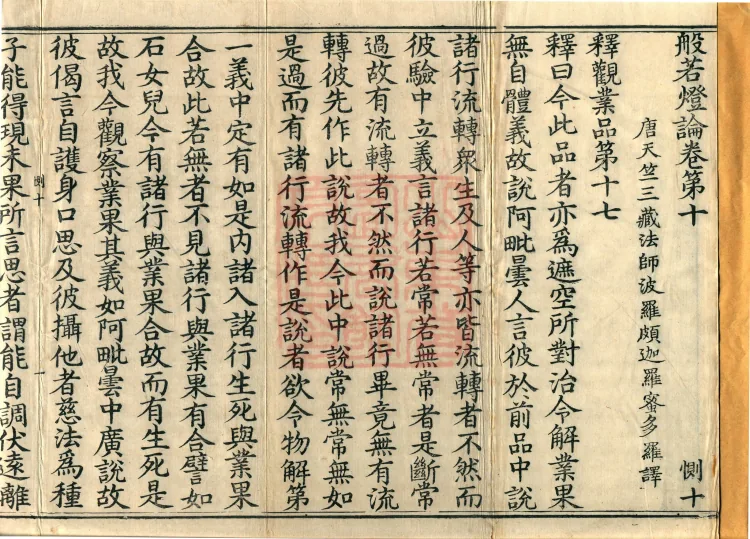 般若燈論卷第十　惻十
唐天竺三藏法師波羅頗迦羅蜜多羅譯
釋觀業品第十七
釋曰今此品者亦爲遮空所對治令解業果
無自體義故說阿毗曇人言彼於前品中說
諸行流轉衆生及人等亦皆流轉者不然而
彼驗中立義言諸行若常若無常者是斷常
過故有流轉者不然而說諸行畢竟無有流
轉彼先作此說故我今此中說常無常無如
是過而有諸行流轉作是說者欲令物解第
一義中定有如是內諸入諸行生死與業果
合故此若無者不見諸行與業果有合譬如
石女兒今有諸行與業果合故而有生死是
故我今觀察業果其義如阿毗曇中廣說故
彼偈言自護身口思及彼攝他者慈法爲種
惻十　一
子能得現未果所言思者謂能自調伏遠離